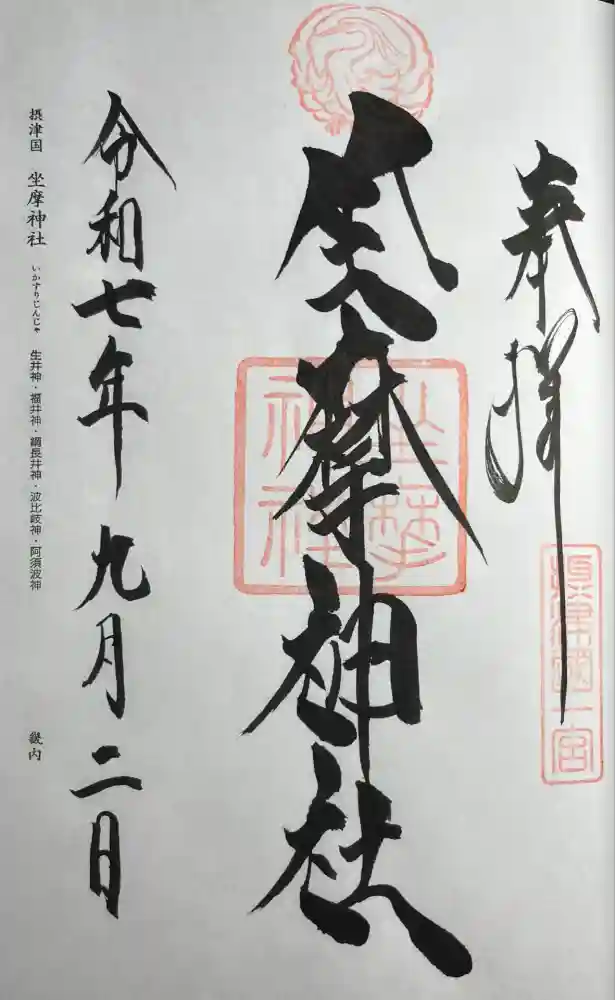 奉拝
摂津國一宮
坐摩神社
坐摩神社
令和七年九月二日
摂津国 坐摩神社 いかすりじんじゃ 生井神・福井神・綱長井神・波比岐神・阿須波神 畿内